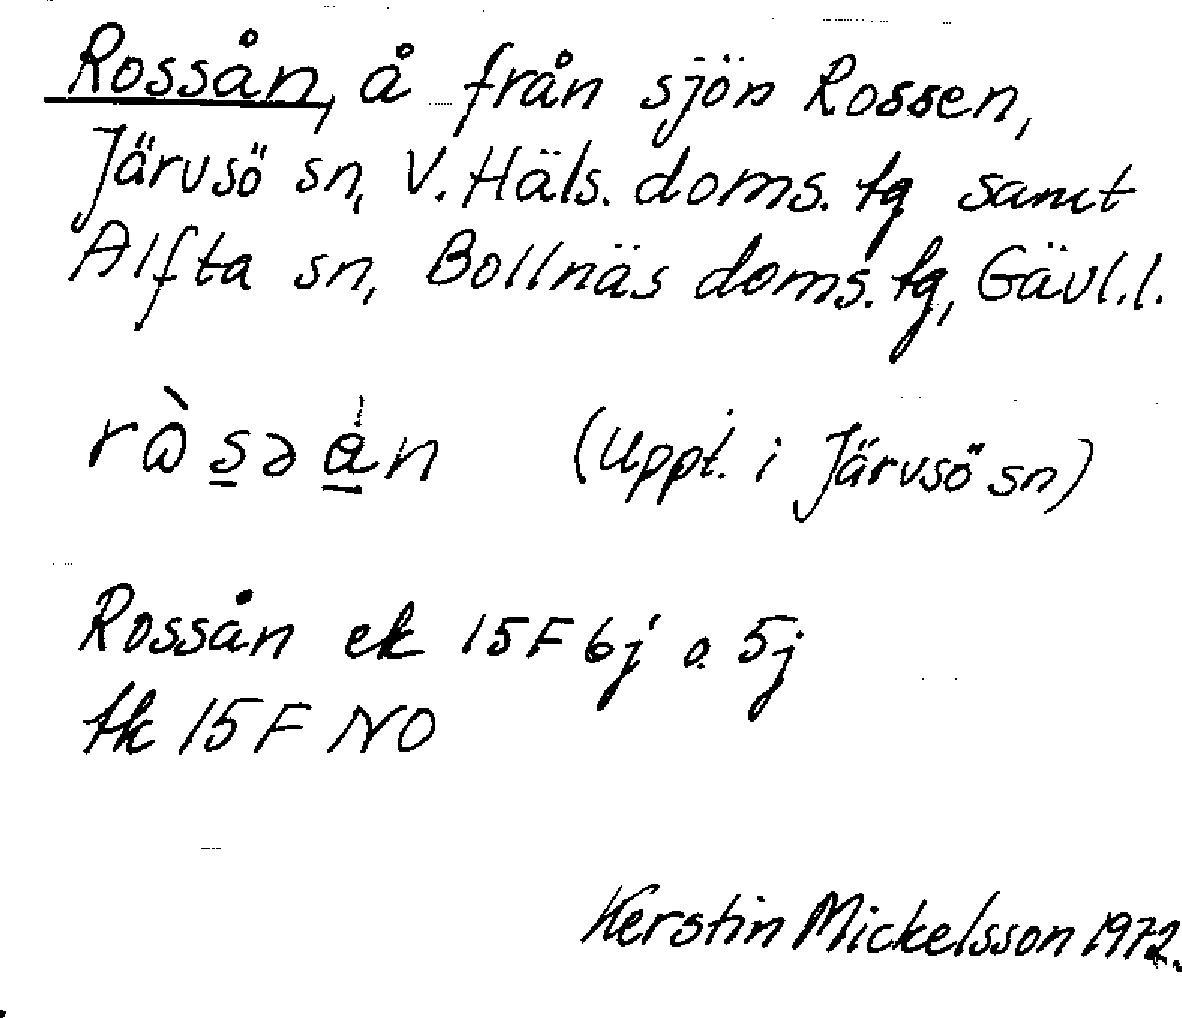 Rossån, å från sjön Rossen,
Järvsö sn, V. Häls. doms. tg samt
Alfta sn, Bollnäs doms. tg, Gävl.l.
(Uppt. i Järvsö sn)
Rossån ek 15F6j o. 5j
tk 15F NO
Kerstin Mickelsson 1972.